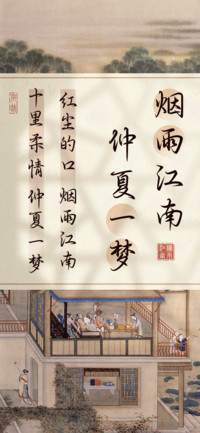 烟雨江南
仲夏一梦
红尘的口 烟雨江南
十里柔情 仲夏一梦